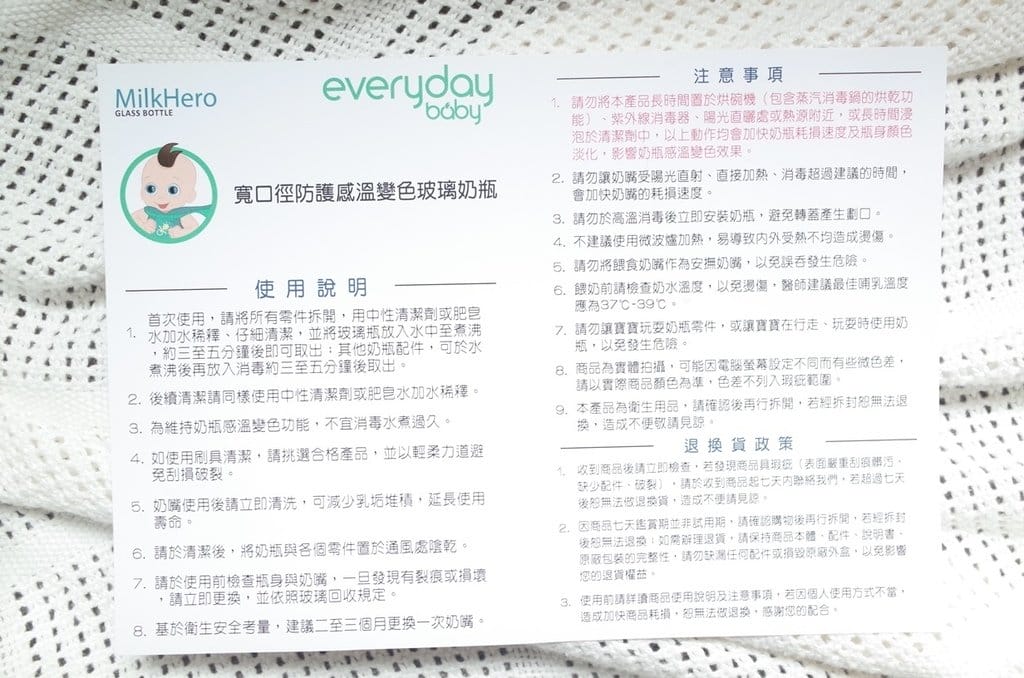 MilkHero
GLASS BOTTLE
everyday
baby
寬口徑防護感溫變色玻璃奶瓶
使用說明
1. 首次使用，請將所有零件拆開，用中性清潔劑或肥皂
水加水稀釋、仔細清潔，並將玻璃瓶放入水中至煮沸
，約三至五分鐘後即可取出；其他奶瓶配件，可於水
煮沸後再放入消毒約三至五分鐘後取出。
2. 後續清潔請同樣使用中性清潔劑或肥皂水加水稀釋。
3. 為維持奶瓶感溫變色功能，不宜消毒水煮過久。
4. 如使用刷具清潔，請挑選合格產品，並以輕柔力道避
免刮損破裂。
5. 奶嘴使用後請立即清洗，可減少乳垢堆積，延長使用
壽命。
6. 請於清潔後，將奶瓶與各個零件置於通風處晾乾。
7. 請於使用前檢查瓶身與奶嘴，一旦發現有裂痕或損壞
，請立即更換，並依照玻璃回收規定。
8. 基於衛生安全考量，建議二至三個月更換一次奶嘴。
注意事項
1. 請勿將本產品長時間置於烘碗機（包含蒸汽消毒鍋的烘乾功
能）、紫外線消毒器、陽光直曬處或熱源附近，或長時間浸
泡於清潔劑中，以上動作均會加快奶瓶耗損速度及瓶身顏色
淡化，影響奶瓶感溫變色效果。
2. 請勿讓奶嘴受陽光直射、直接加熱、消毒超過建議的時間，
會加快奶嘴的耗損速度。
3. 請勿於高溫消毒後立即安裝奶瓶，避免轉蓋產生劃口。
4. 不建議使用微波爐加熱，易導致內外受熱不均造成燙傷。
5. 請勿將餵食奶嘴作為安撫奶嘴，以免誤吞發生危險。
6. 餵奶前請檢查奶水溫度，以免燙傷，醫師建議最佳哺乳溫度
應為37℃-39℃。
7. 請勿讓寶寶玩耍奶瓶零件，或讓寶寶在行走、玩耍時使用奶
瓶，以免發生危險。
8. 商品為實體拍攝，可能因電腦螢幕設定不同而有些微色差，
請以實際商品顏色為準，色差不列入瑕疵範圍。
9. 本產品為衛生用品，請確認後再行拆開，若經拆封恕無法退
換，造成不便敬請見諒。
退換貨政策
1. 收到商品後請立即檢查，若發現商品具瑕疵（表面嚴重刮痕髒污、
缺少配件、破裂），請於收到商品起七天內聯絡我們，若超過七天
後恕無法做退換貨，造成不便請見諒。
2. 因商品七天鑑賞期並非試用期，請確認購物後再行拆開，若經拆封
後恕無法退換；如需辦理退貨，請保持商品本體、配件、說明書、
原廠包裝的完整性，請勿缺漏任何配件或損毀原廠外盒，以免影響
您的退貨權益。
3. 使用前請詳讀商品使用說明及注意事項，若因個人使用方式不當，
造成加快商品耗損，恕無法做退換，感謝您的配合。